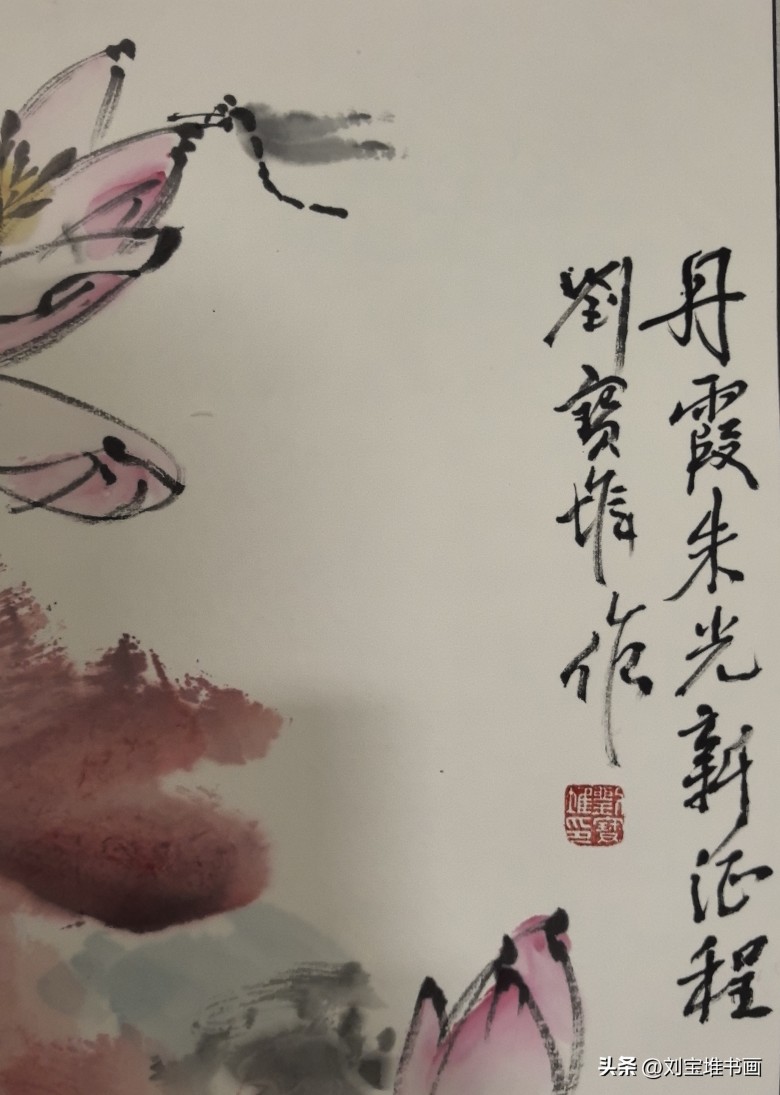 丹霞朱光新征程
劉寳堆作
劉寳堆印
头条 @刘宝堆书画